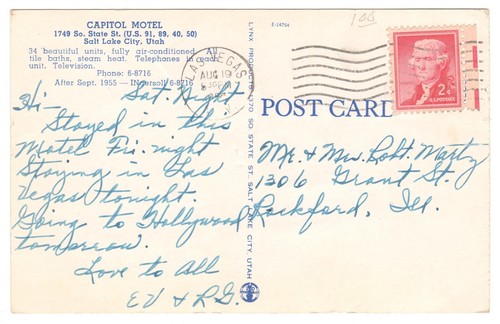 CAPITOL MOTEL
1749 So. State St. (U.S. 91, 89, 40, 50)
Salt Lake City, Utah
34 beautiful units, fully air-conditioned
tile baths, steam heat. Telephones in each
unit. Television.
Phone: 6-8716
After Sept. 1955 — Ingersoll 6-8716
Sat. Night
Hi-
Stayed in this
Motel Fri. night
Staying in Las
Vegas tonight.
Going to Hollywood
tomorrow.
Love to All
LAS VEGAS
AUG 19
E-14764
100
2¢
U.S. POSTAGE
POST CARD
SO STATE ST. SALT LAKE CITY, UTAH
Mr. & Mrs. Robt. Martz
1306 Grant St.
Rockford, Ill.